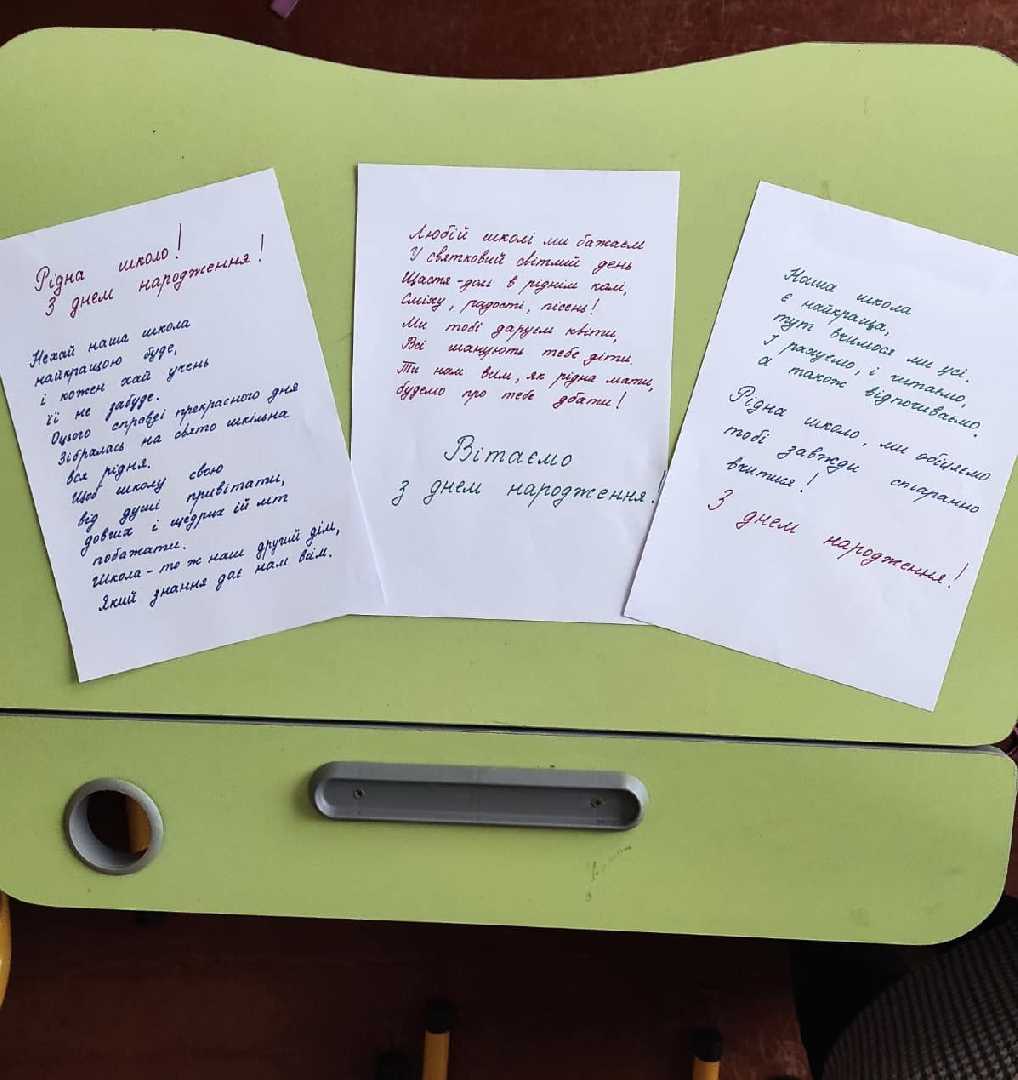 Рідна школо!
З днем народження!
Нехай наша школа
найкращою буде,
і кожен хай учень
її не забуде.
Оцього справді прекрасного дня
Зібралась на свято шкільна
вся рідня.
Щоб школу свою
від душі привітати,
довгих і щедрих їй літ
побажати.
Школа - то ж наш другий дім,
Який знання дає нам всім.
Любій школі ми бажаєм
У святковий світлий день
Щастя-долі в ріднім колі,
Сміху, радості, пісень!
Ми тобі даруєм квіти,
Всі шанують тебе діти.
Ти нам всім, як рідна мати,
будемо про тебе дбати!
Вітаємо
з днем народження!
Наша школа
є найкраща,
тут вчимося ми усі.
І рахуємо, і читаємо,
а також відпочиваємо.
Рідна школо, ми обіцяємо
тобі завжди старанно
вчитися!
З днем народження!